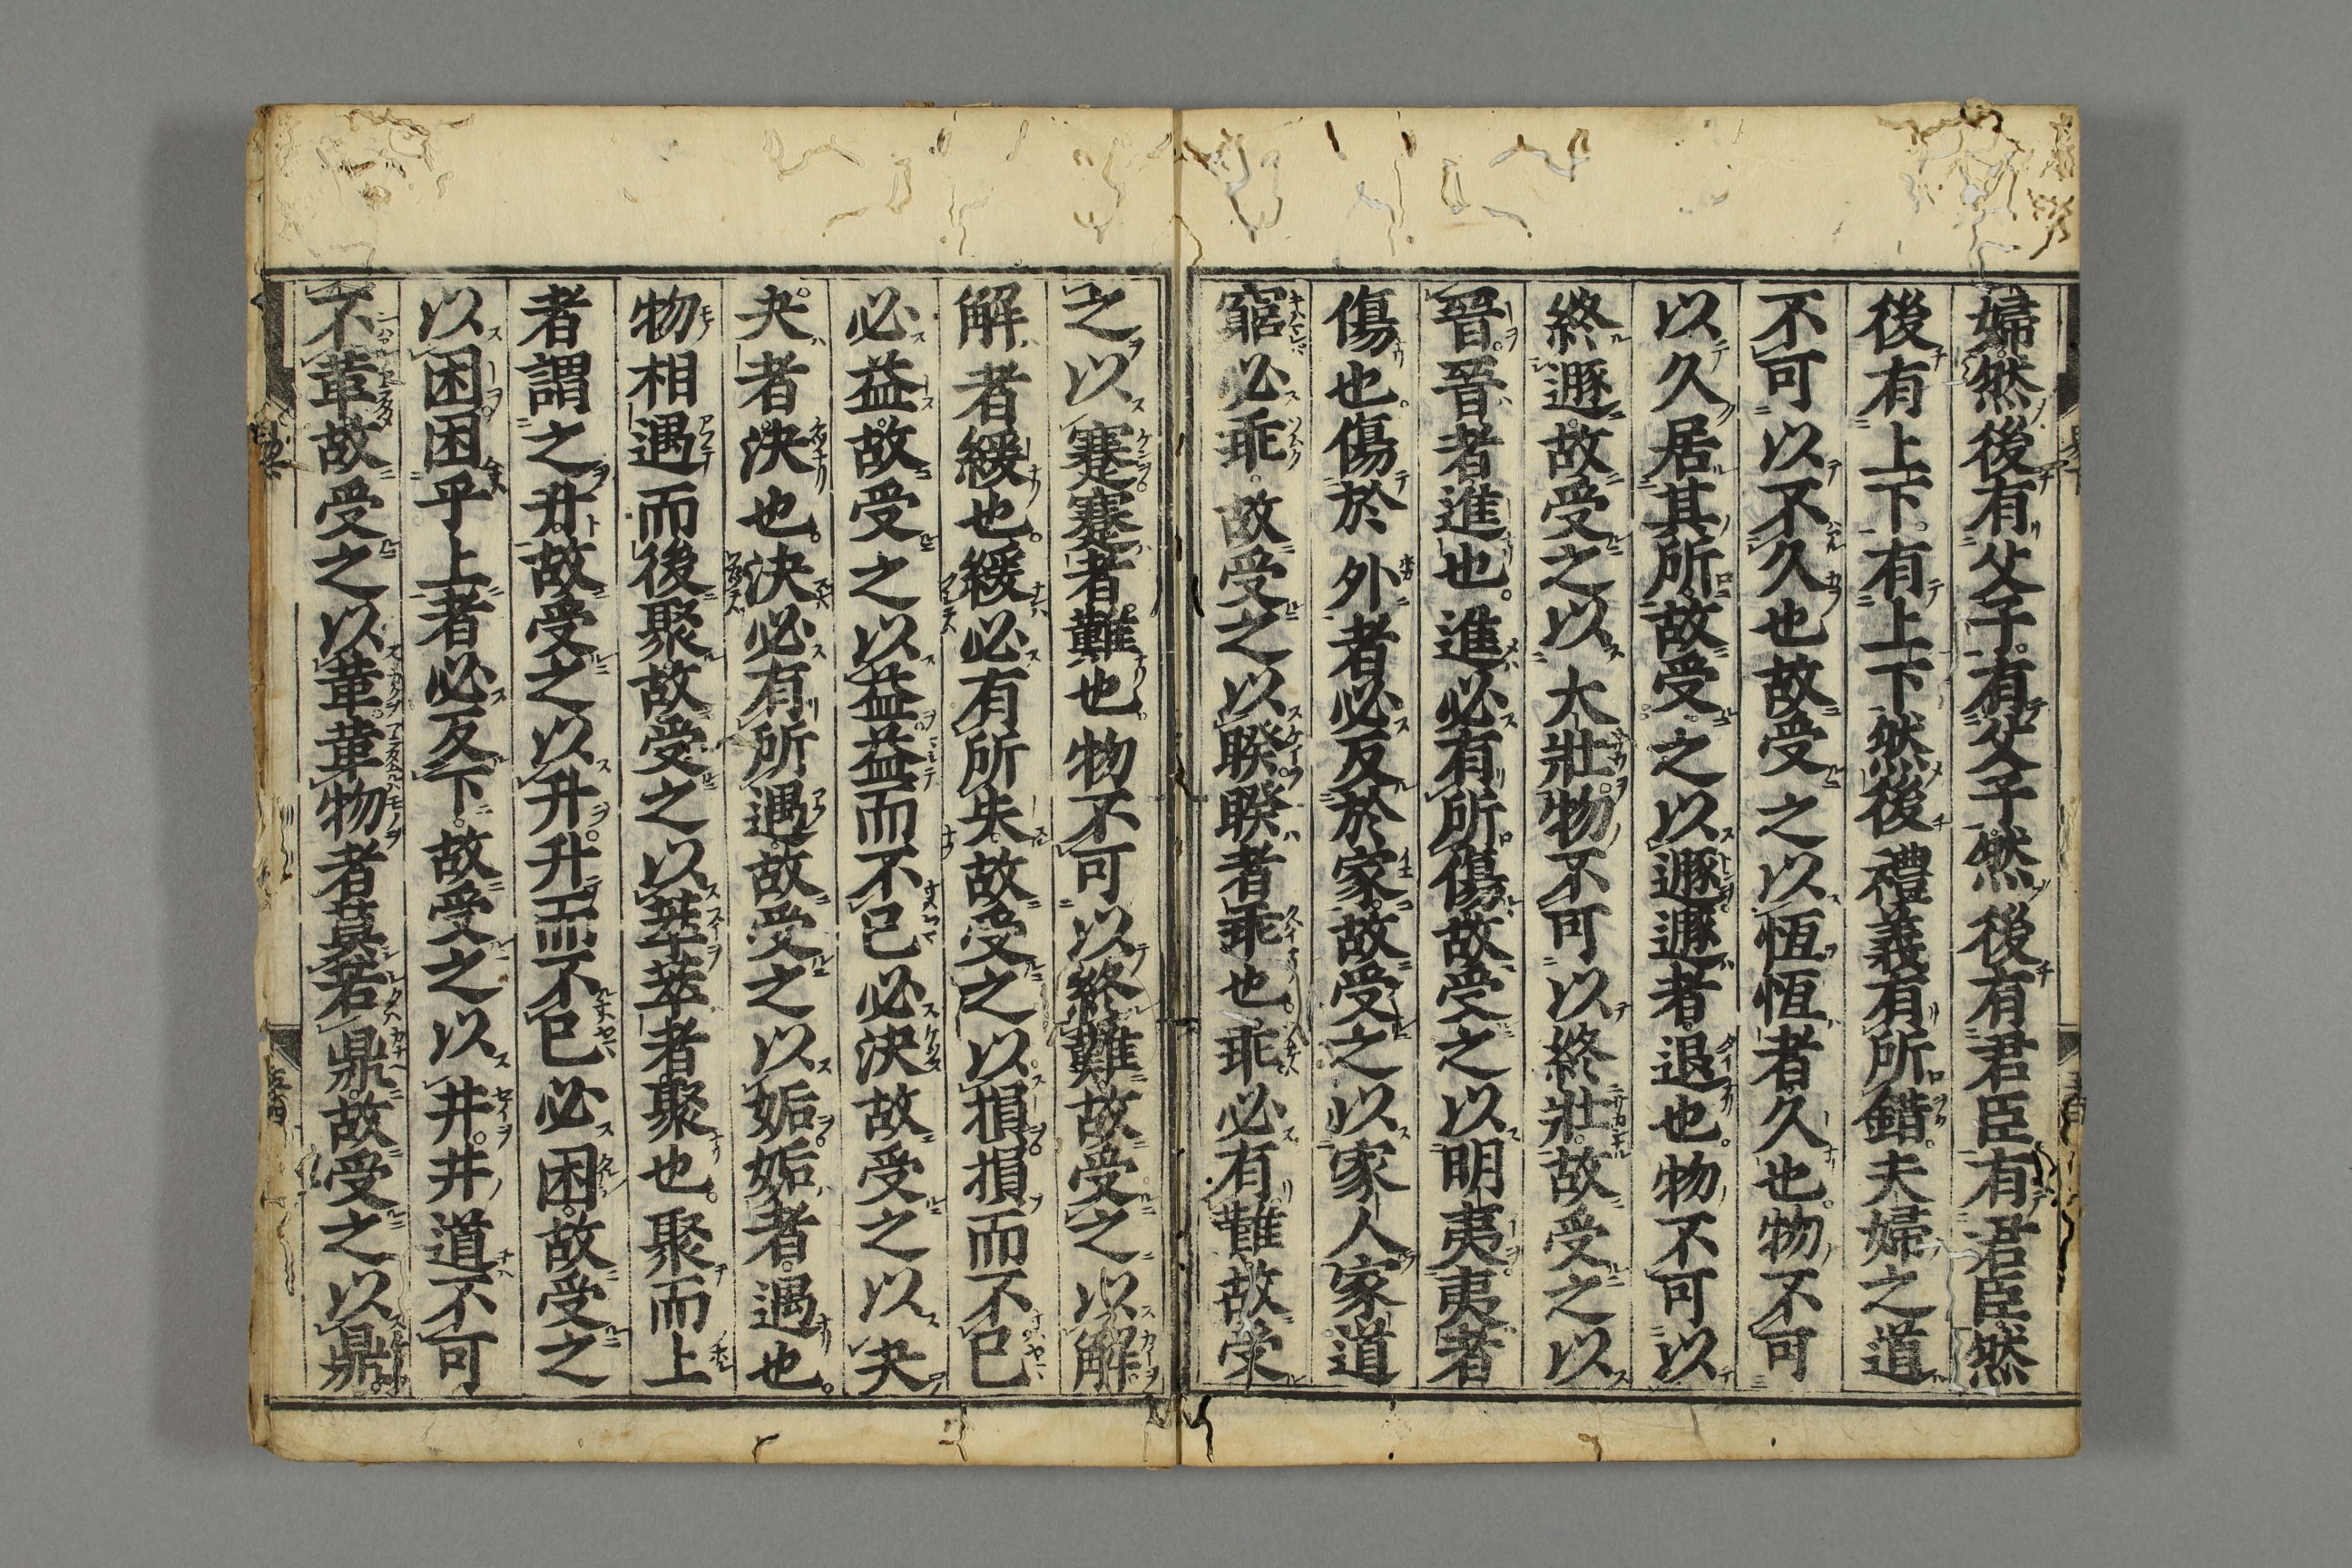 婦然後有父子有父子然後有君臣有君臣然
後有上下有上下然後禮義有所錯夫婦之道
不可以不久也故受之以恆恆者久也物不可
以久居其所故受之以遯遯者退也物不可以
終遯故受之以大壯物不可以終壯故受之以
晉晉者進也進必有所傷故受之以明夷夷者
傷也傷於外者必反於家故受之以家人家道
窮必乖故受之以睽睽者乖也乖必有難故受
之以蹇蹇者難也物不可以終難故受之以解
解者緩也緩必有所失故受之以損損而不已
必益故受之以益益而不已必決故受之以夬
夬者決也決必有所遇故受之以姤姤者遇也
物相遇而後聚故受之以萃萃者聚也聚而上
者謂之升故受之以升升而不已必困故受之
以困困乎上者必反下故受之以井井道不可
不革故受之以革革物者莫若鼎故受之以鼎